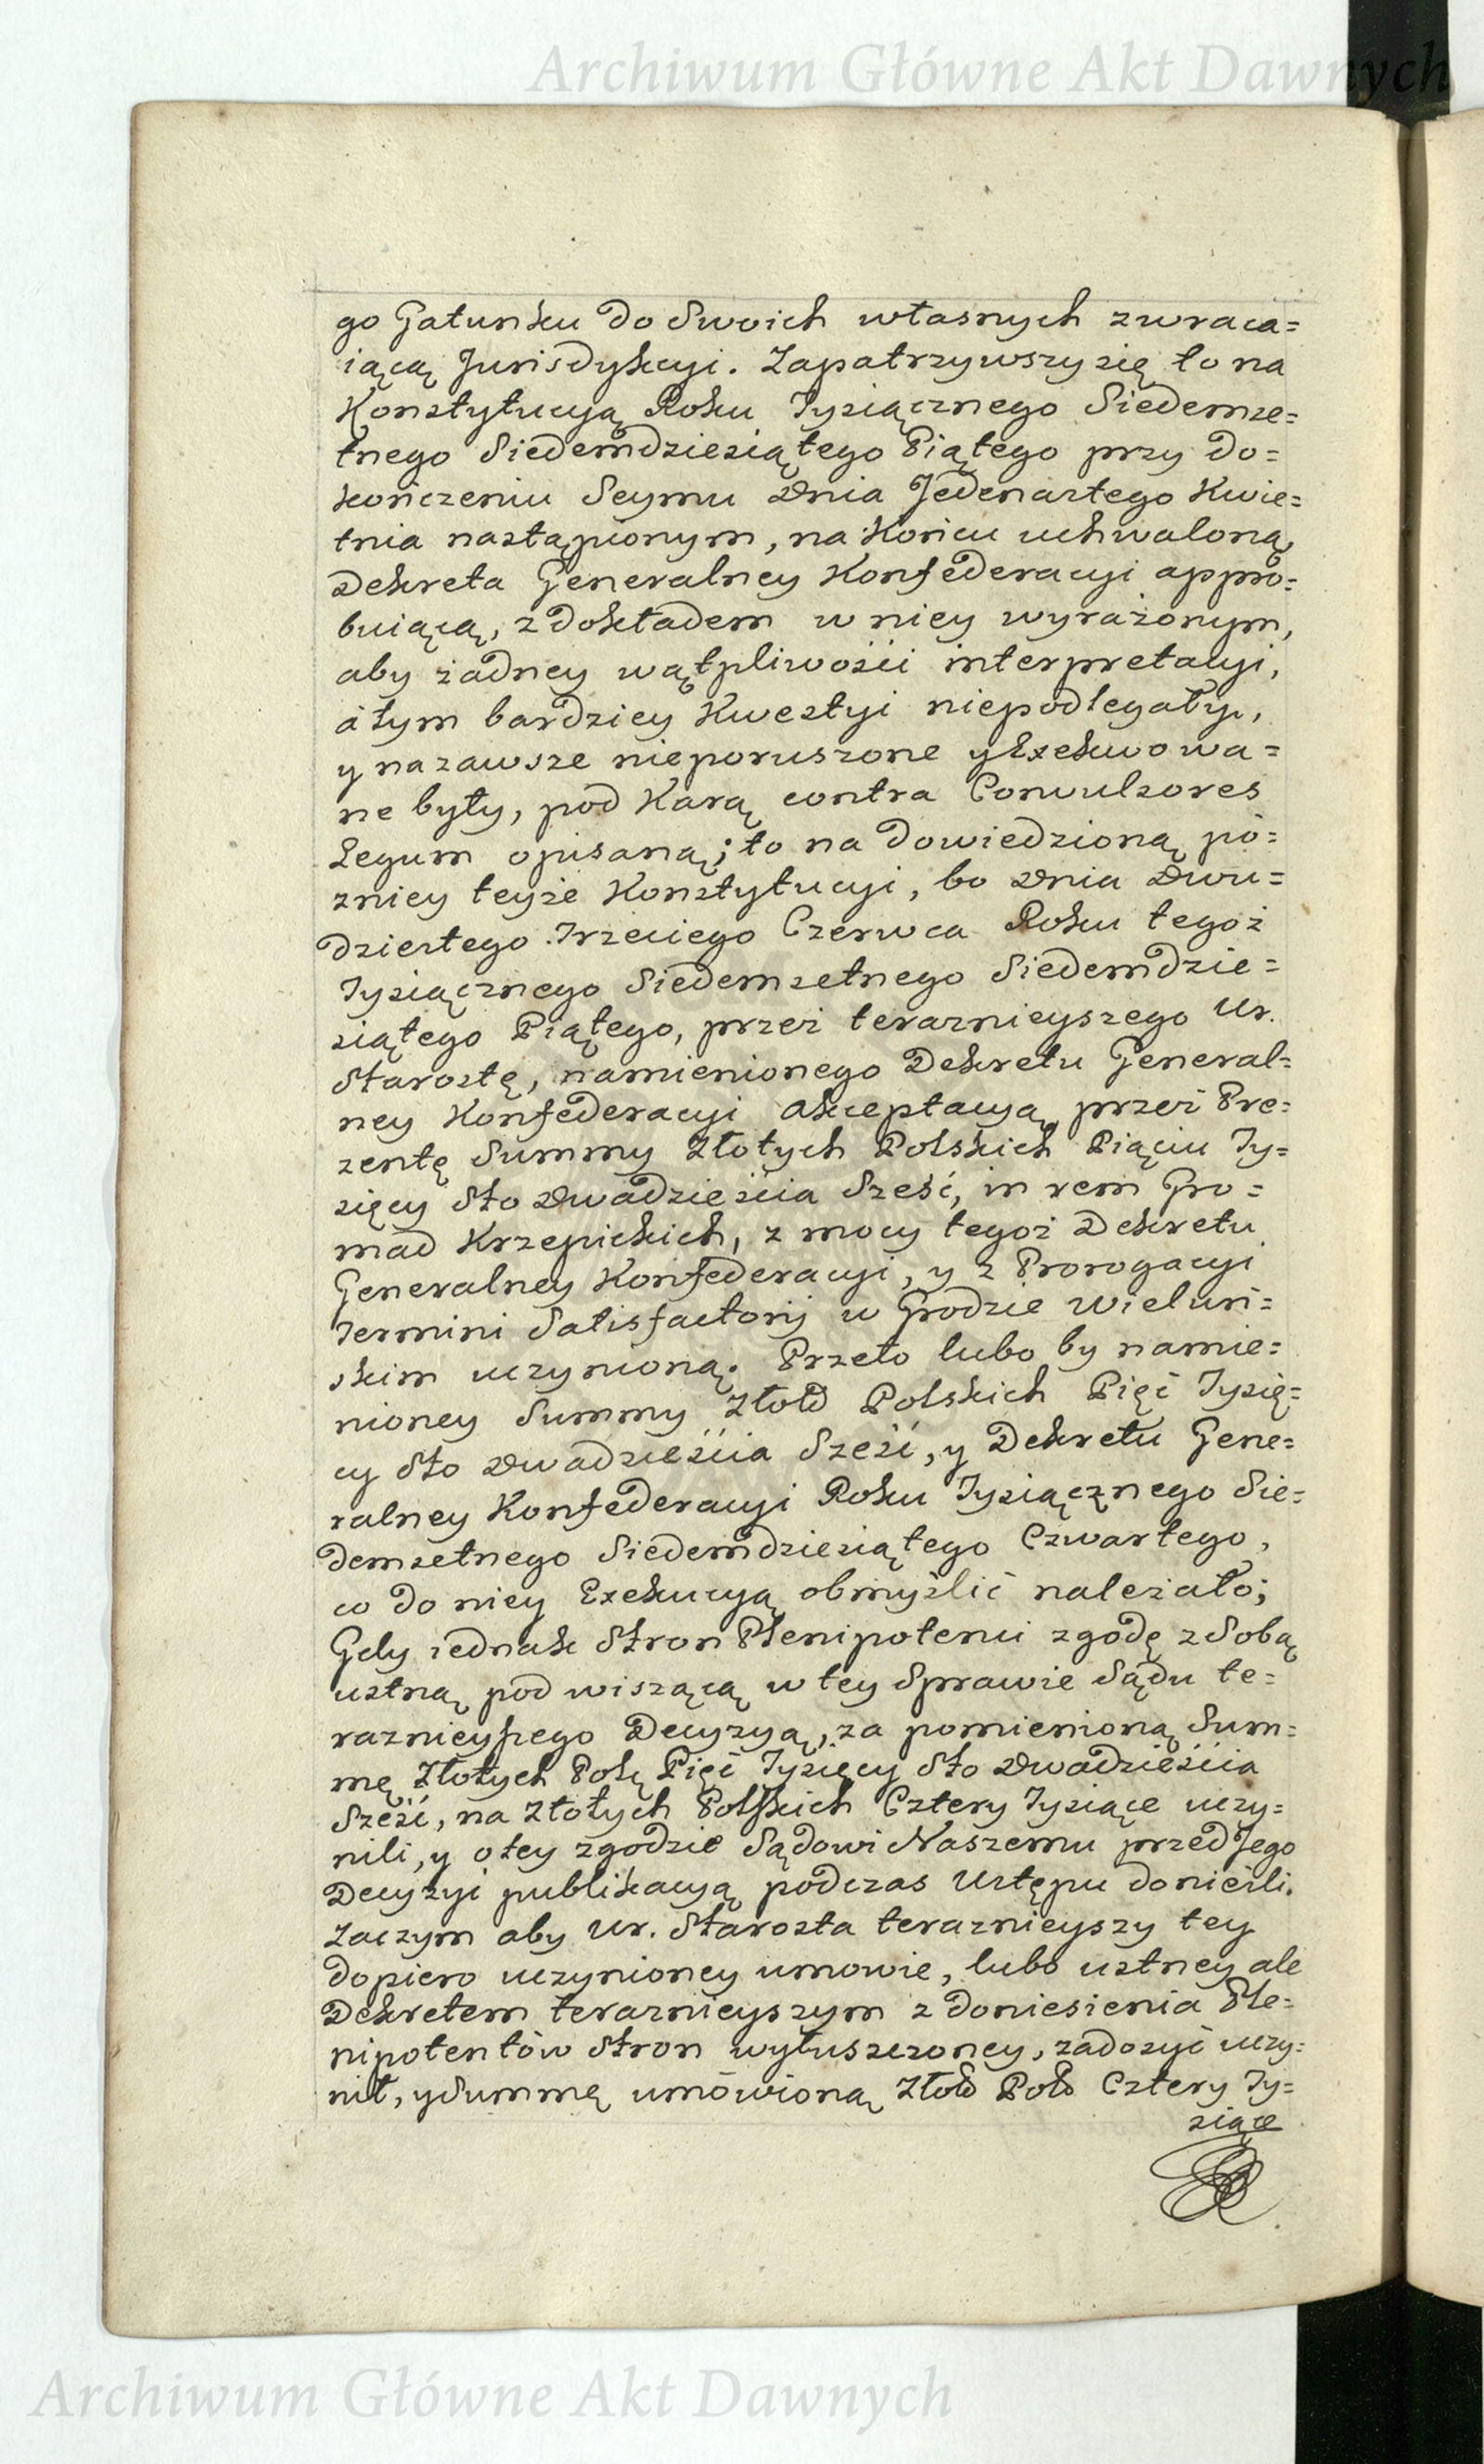 Archiwum Główne Akt Dawnych
go Gatunku do Swoich własnych zwraca=
iącą Jurisdykcyi. Zapatrzywszy się to na
Konstytucyą Roku Tysiącznego Siedemse=
tnego Siedemdziesiątego Piątego przy do=
kończeniu Seymu Dnia Jedenastego Kwie=
tnia nastąpionym, na końcu uchwaloną,
Dekreta Generalney Konfederacyi appro=
buiącą, z dokładem w niey wyrażonym,
aby żadney wątpliwości interpretacyi,
á tym bardziey Kwestyi niepodlegały,
y na zawsze nieporuszone y Exekwowa=
ne były, pod Karą contra Convulsores
Legum opisaną; to na dowiedzioną pó=
zniey teyże Konstytucyi, bo Dnia Dwu=
dziestego Trzeciego Czerwca Roku tegoż
Tysiącznego Siedemsetnego Siedemdzie=
siątego Piątego, przez teraznieyszego Ur.
Starostę, namienionego Dekretu General=
ney Konfederacyi akceptacyą przez Pre=
zentę Summy Złotych Polskich Piąciu Ty=
sięcy Sto Dwadzieścia Sześć, in rem Gro=
mad Krzepickich, z mocy tegoż Dekretu
Generalney Konfederacyi, y z Prorogacyi
Termini Satisfactorij w Grodzie Wieluń=
skim uczynioną. Przeto lubo by namie=
nioney Summy Złotd Polskich Pięć Tysię=
cy Sto Dwadzieścia Sześć, y Dekretu Gene=
ralney Konfederacyi Roku Tysiącznego Sie=
demsetnego Siedemdziesiątego Czwartego,
co do niey Exekucyą obmyślić należało;
Gdy iednak Stron Plenipotenci zgodę z Sobą
ustną pod wiszącą w tey Sprawie Sądu te=
raznieyszego Decyzyą, za pomienioną Sum=
mę Złotych Polę Pięć Tysięcy Sto Dwadzieścia
Sześć, na Złotych Polskich Cztery Tysiące uczy=
nili, y o tey zgodzie Sądowi Naszemu przed Jego
Decyzyi publikacyą podczas Ustępu donieśli.
Zaczym aby Ur. Starosta teraznieyszy tey
dopiero uczynioney umowie, lubo ustney ale
Dekretem teraznieyszym z doniesienia Ple=
nipotentów Stron wyłuszczoney, zadosyć uczy=
nił, y Summę umówioną Złotd Pold Cztery Ty=
siące
Archiwum Główne Akt Dawnych